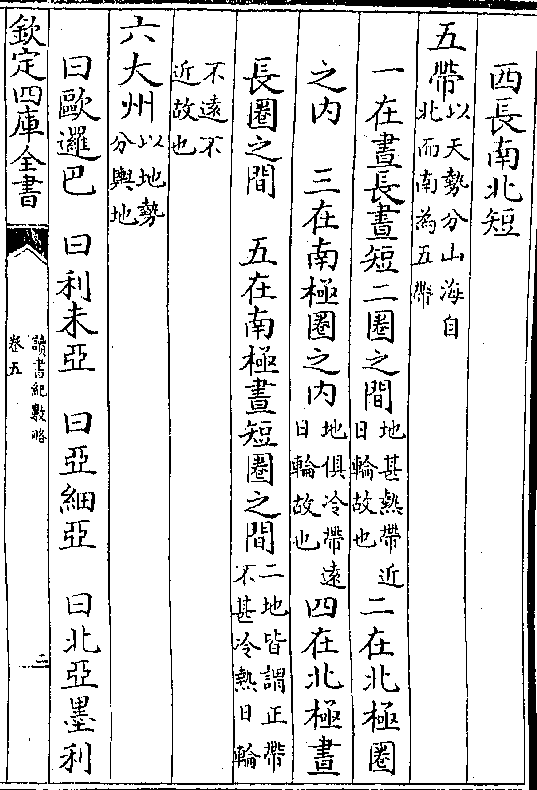 西長南北短
五帶以天勢分山海自
北而南為五帶
一在晝長晝短二圈之間地甚熱帶近
日輪故也二在北極圈
之内 三在南極圈之内地俱冷帶遠
日輪故也四在北極晝
長圈之間 五在南極晝短圈之間二地皆謂正帶
不甚冷熱日輪
不遠不
近故也
六大州以地勢
分輿地
曰歐邏巴 曰利未亞 曰亞細亞 曰北亞墨利
欽定四庫全書
讀書紀數略
卷五
二